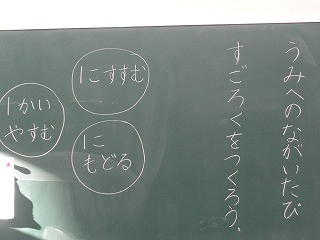 うみへのながいたび
すごろくをつくろう。
1こすすむ
1こ
もどる
1かい
やすむ